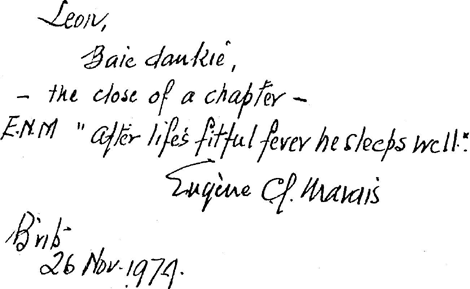 Leon,
Baie dankie,
- the close of a chapter -
E.N.M "after life's fitful fever he sleeps well".
Eugène Ch. Marais
26 Nov. 1974.